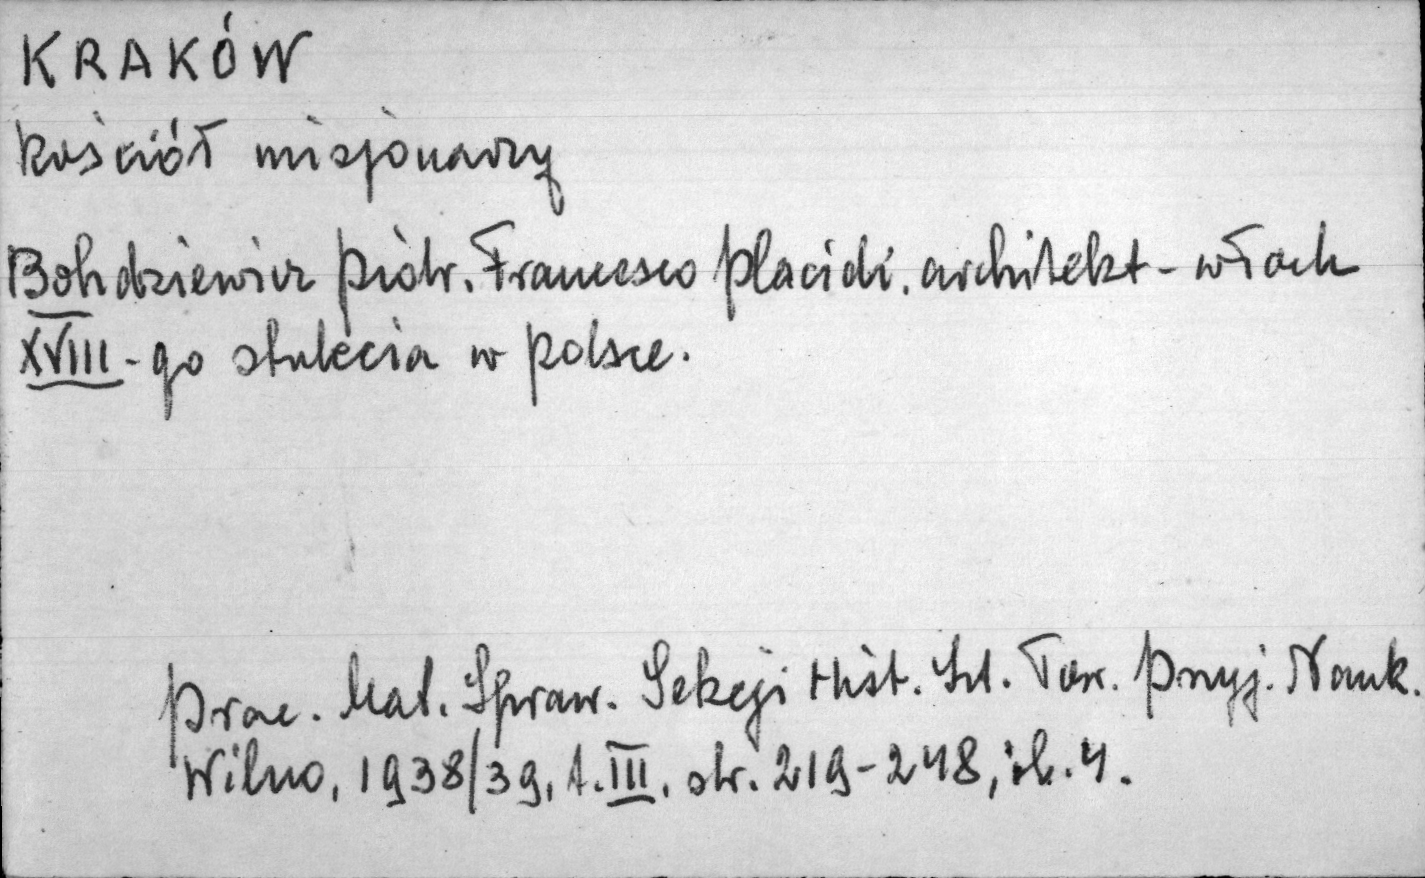 KRAKÓW
kościół misjonarzy
Bohdziewicz Piotr. Francesco Placidi. architekt - włoch
XVIII-go stulecia w Polsce.
Prac. Mat. Spraw. Sekcji Hist. Szt. Tow. Przyj. Nauk.
Wilno, 1938/39, t. III. str. 219-248, il. 4.